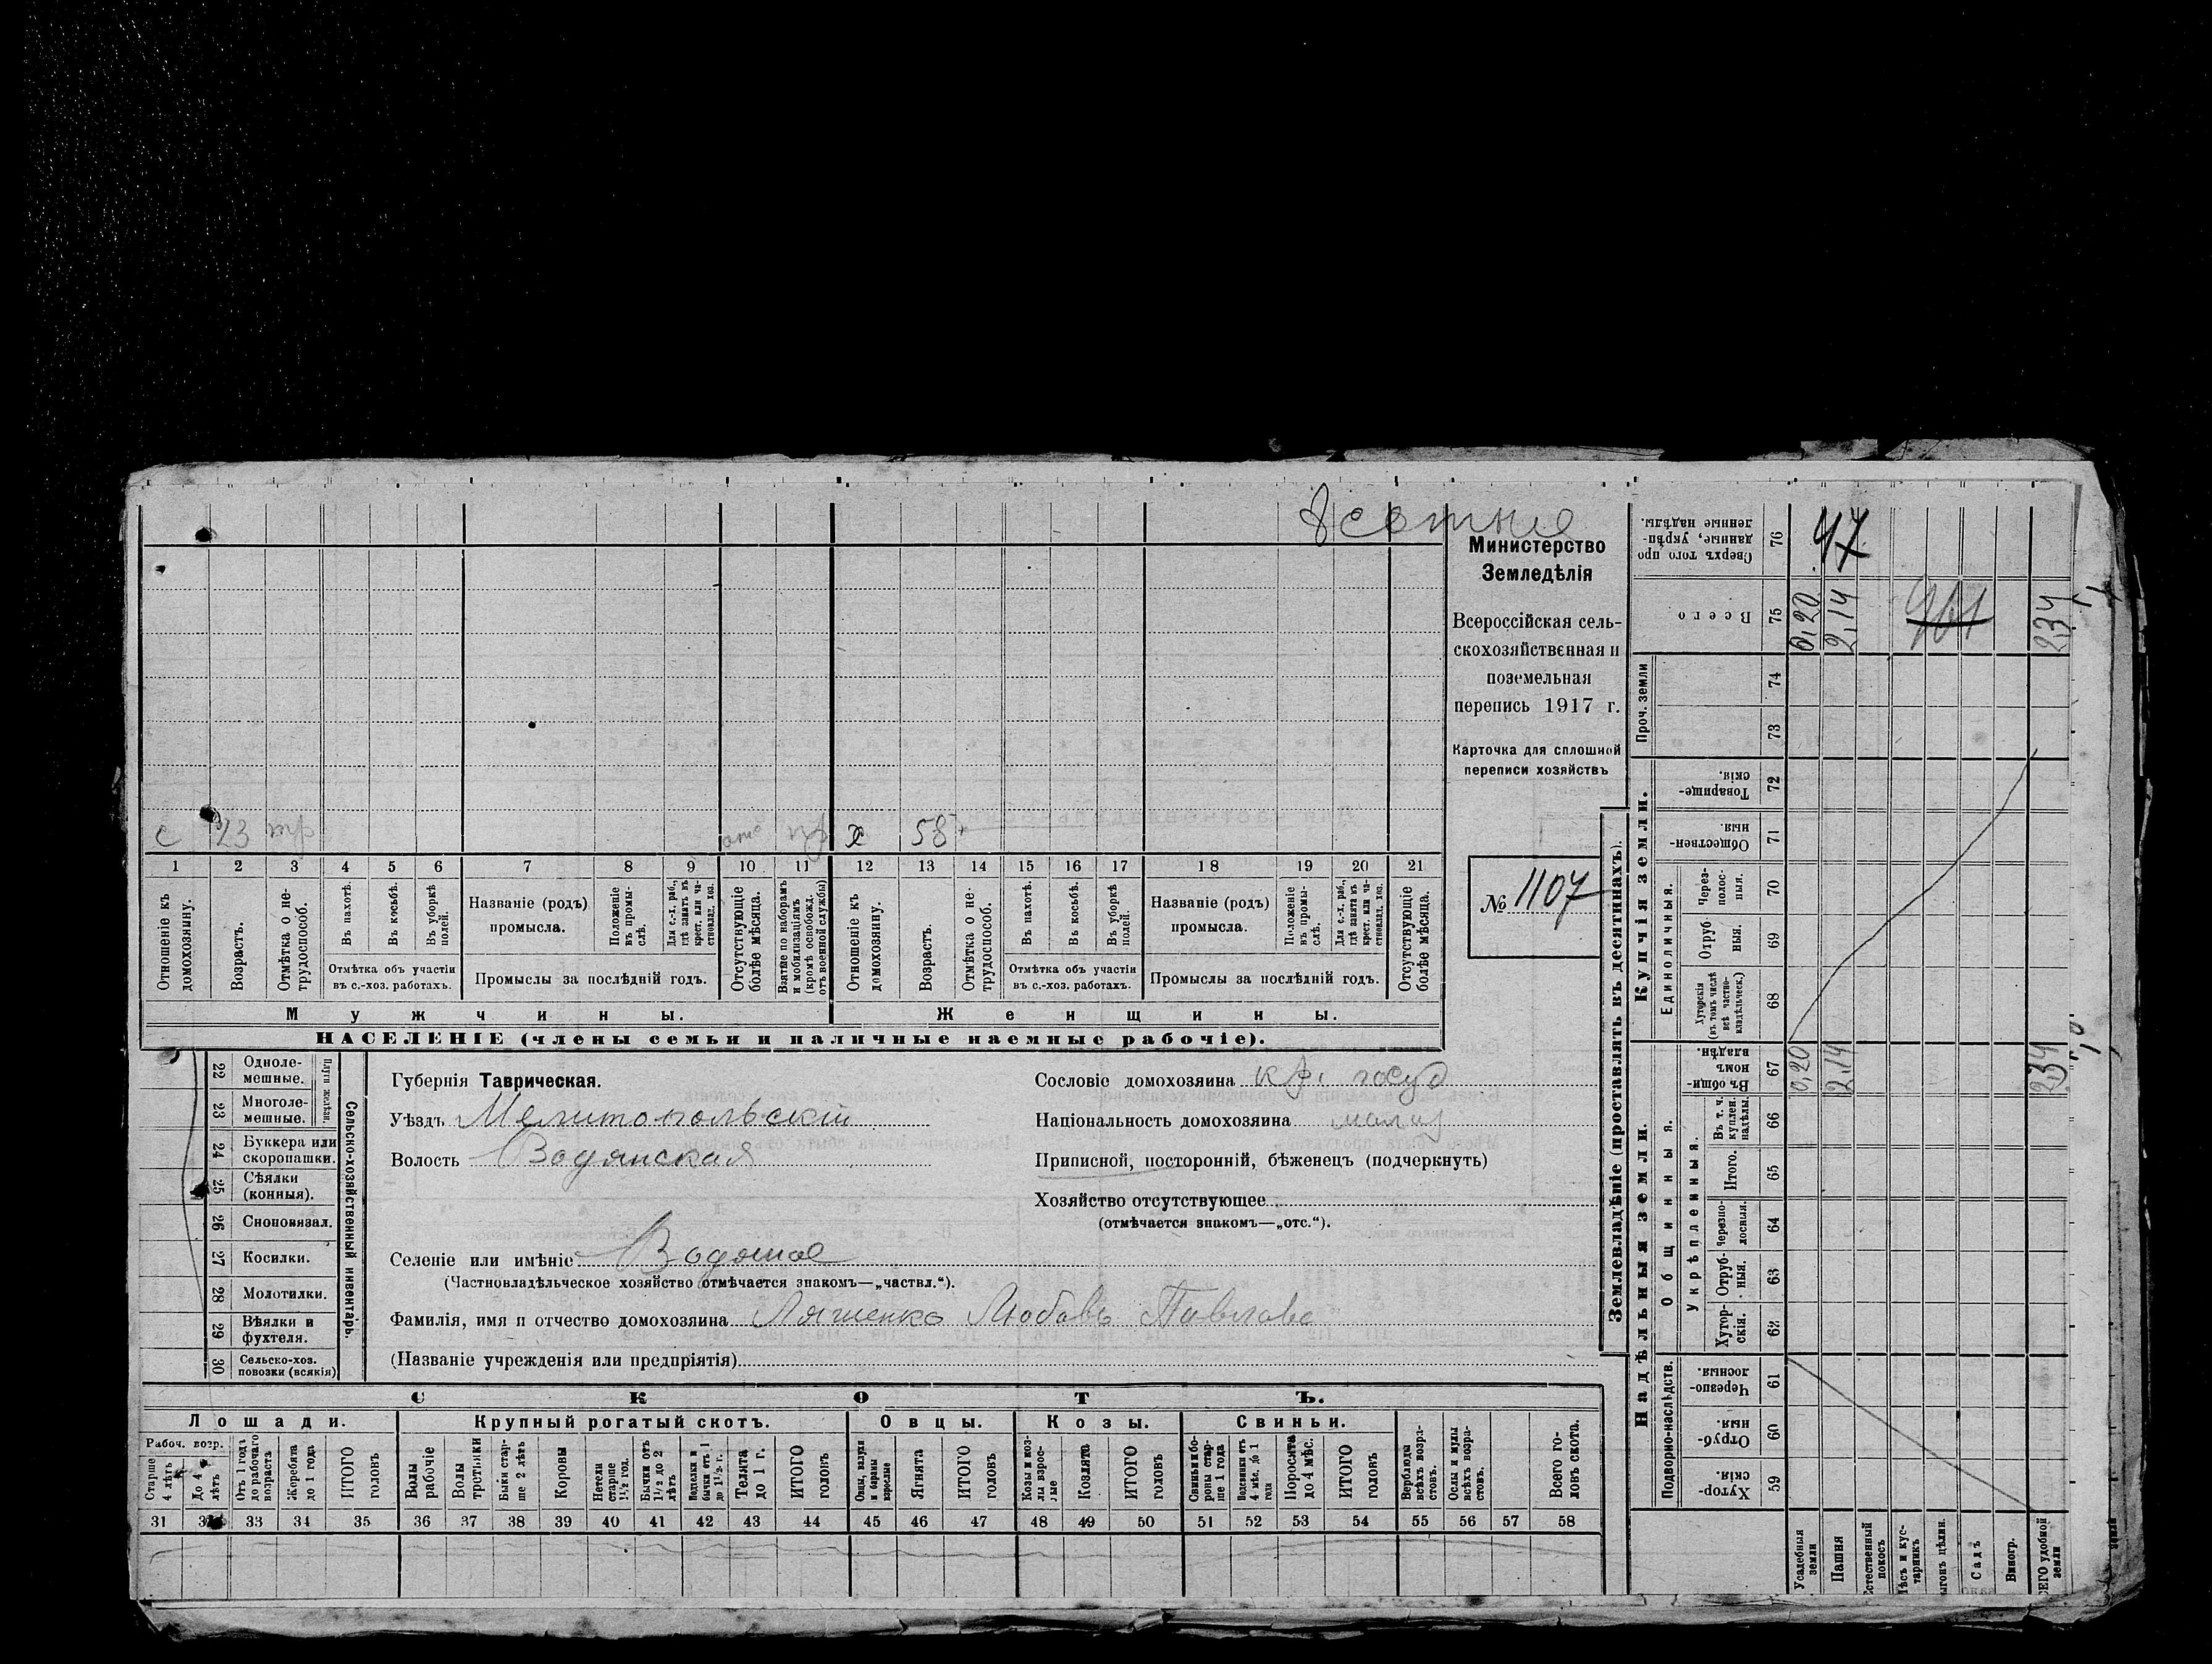 Министерство
Земледѣлія
Всероссійская сель-
скохозяйственная и
поземельная
перепись 1917 г.
Карточка для сплошной
переписи хозяйствъ
№ 1107
с 23 тр х 58
1 2 3 4 5 6 7 8 9 10 11 12 13 14 15 16 17 18 19 20 21
Отношеніе къ домохозяину.
Возрастъ.
Отмѣтка о не-трудоспособ.
Въ пахотѣ.
Въ косьбѣ.
Въ уборкѣ полей.
Отмѣтка объ участіи
въ с.-хоз. работахъ.
Названіе (родъ)
промысла.
Положеніе въ промы-слѣ.
Для с.-х. раб., гдѣ занятъ въ крест. или ча-стновлад. хоз.
Промыслы за послѣдній годъ.
Отсутствующіе болѣе мѣсяца.
Взятые по наборамъ и мобилизаціямъ (кромѣ освобожд. отъ военной службы)
Отношеніе къ домохозяину.
Возрастъ.
Отмѣтка о не-трудоспособ.
Въ пахотѣ.
Въ косьбѣ.
Въ уборкѣ полей.
Отмѣтка объ участіи
въ с.-хоз. работахъ.
Названіе (родъ)
промысла.
Положеніе въ промы-слѣ.
Для с.-х. раб., гдѣ занята въ крест. или ча-стновлад. хоз.
Промыслы за послѣдній годъ.
Отсутствующіе болѣе мѣсяца.
Мужчины.
Женщины.
НАСЕЛЕНІЕ (члены семьи и наличные наемные рабочіе).
22 Одноле-
мешные.
23 Многоле-
мешные.
Плуги желѣзн.
24 Буккера или
скоропашки.
25 Сѣялки
(конныя).
26 Сноповязал.
27 Косилки.
28 Молотилки.
29 Вѣялки и
фухтеля.
30 Сельско-хоз.
повозки (всякія)
Сельско-хозяйственный инвентарь.
Губернія Таврическая.
Уѣздъ Мелитопольскій
Волость Водянская
Селеніе или имѣніе Водяное
(Частновладѣльческое хозяйство отмѣчается знакомъ—„частвл.“).
Фамилія, имя и отчество домохозяина Ляшенко Любовь Павлова
(Названіе учрежденія или предпріятія)
Сословіе домохозяина кр. госуд
Національность домохозяина малор
Приписной, посторонній, бѣженецъ (подчеркнуть)
Хозяйство отсутствующее
(отмѣчается знакомъ—„отс.“).
СКОТЪ.
Лошади.
Крупный рогатый скотъ.
Овцы.
Козы.
Свиньи.
Рабоч. возр.
Старше 4 лѣтъ
До 4 лѣтъ
Отъ 1 года до рабочаго возраста
Жеребята до 1 года
ИТОГО головъ
Волы рабочіе
Волы третьяки
Быки стар-ше 2 лѣтъ
Коровы
Нетели старше 1½ год.
Бычки отъ 1½ до 2 лѣтъ
Подтелки и бычки отъ 1 до 1½ г.
Телята до 1 г.
ИТОГО головъ
Овцы, валухи и бараны взрослые
Ягнята
ИТОГО головъ
Козы и коз-лы взрос-лые
Козлята
ИТОГО головъ
Свиньи и бо-ровы стар-ше 1 года
Подсвинки отъ 4 мѣс. до 1 года
Поросята до 4 мѣс.
ИТОГО головъ
Верблюды всѣхъ возра-стовъ.
Ослы и мулы всѣхъ возра-стовъ.
Всего го-ловъ скота.
31 32 33 34 35 36 37 38 39 40 41 42 43 44 45 46 47 48 49 50 51 52 53 54 55 56 57 58
Землевладѣніе (проставлять въ десятинахъ).
Купчія земли.
Надѣльныя земли.
Сверхъ того про-данные, укрѣп-ленные надѣлы. 76 47
Всего 75 0,20 2,14 2,34
Проч. земли 74 73
Товарище-скія. 72
Обществен-ныя 71
Единоличныя.
Через-полос-ныя. 70
Отруб-ныя. 69
Хуторскія (въ томъ числѣ всѣ частно-владѣльческ.) 68
Въ общи-нномъ владѣн. 67 0,20 2,14 2,34
Общинныя.
Укрѣпленныя.
Въ т. ч. куплен. надѣлы. 66
Итого. 65
Черезпо-лосныя. 64
Отруб-ныя. 63
Хутор-скія. 62
Подворно-наслѣдств.
Черезпо-лосныя 61
Отруб-ныя 60
Хутор-скія 59
Усадебныя земли
Пашня
Естественный покосъ
Лѣсъ и кус-тарникъ
Садъ
Виногр.